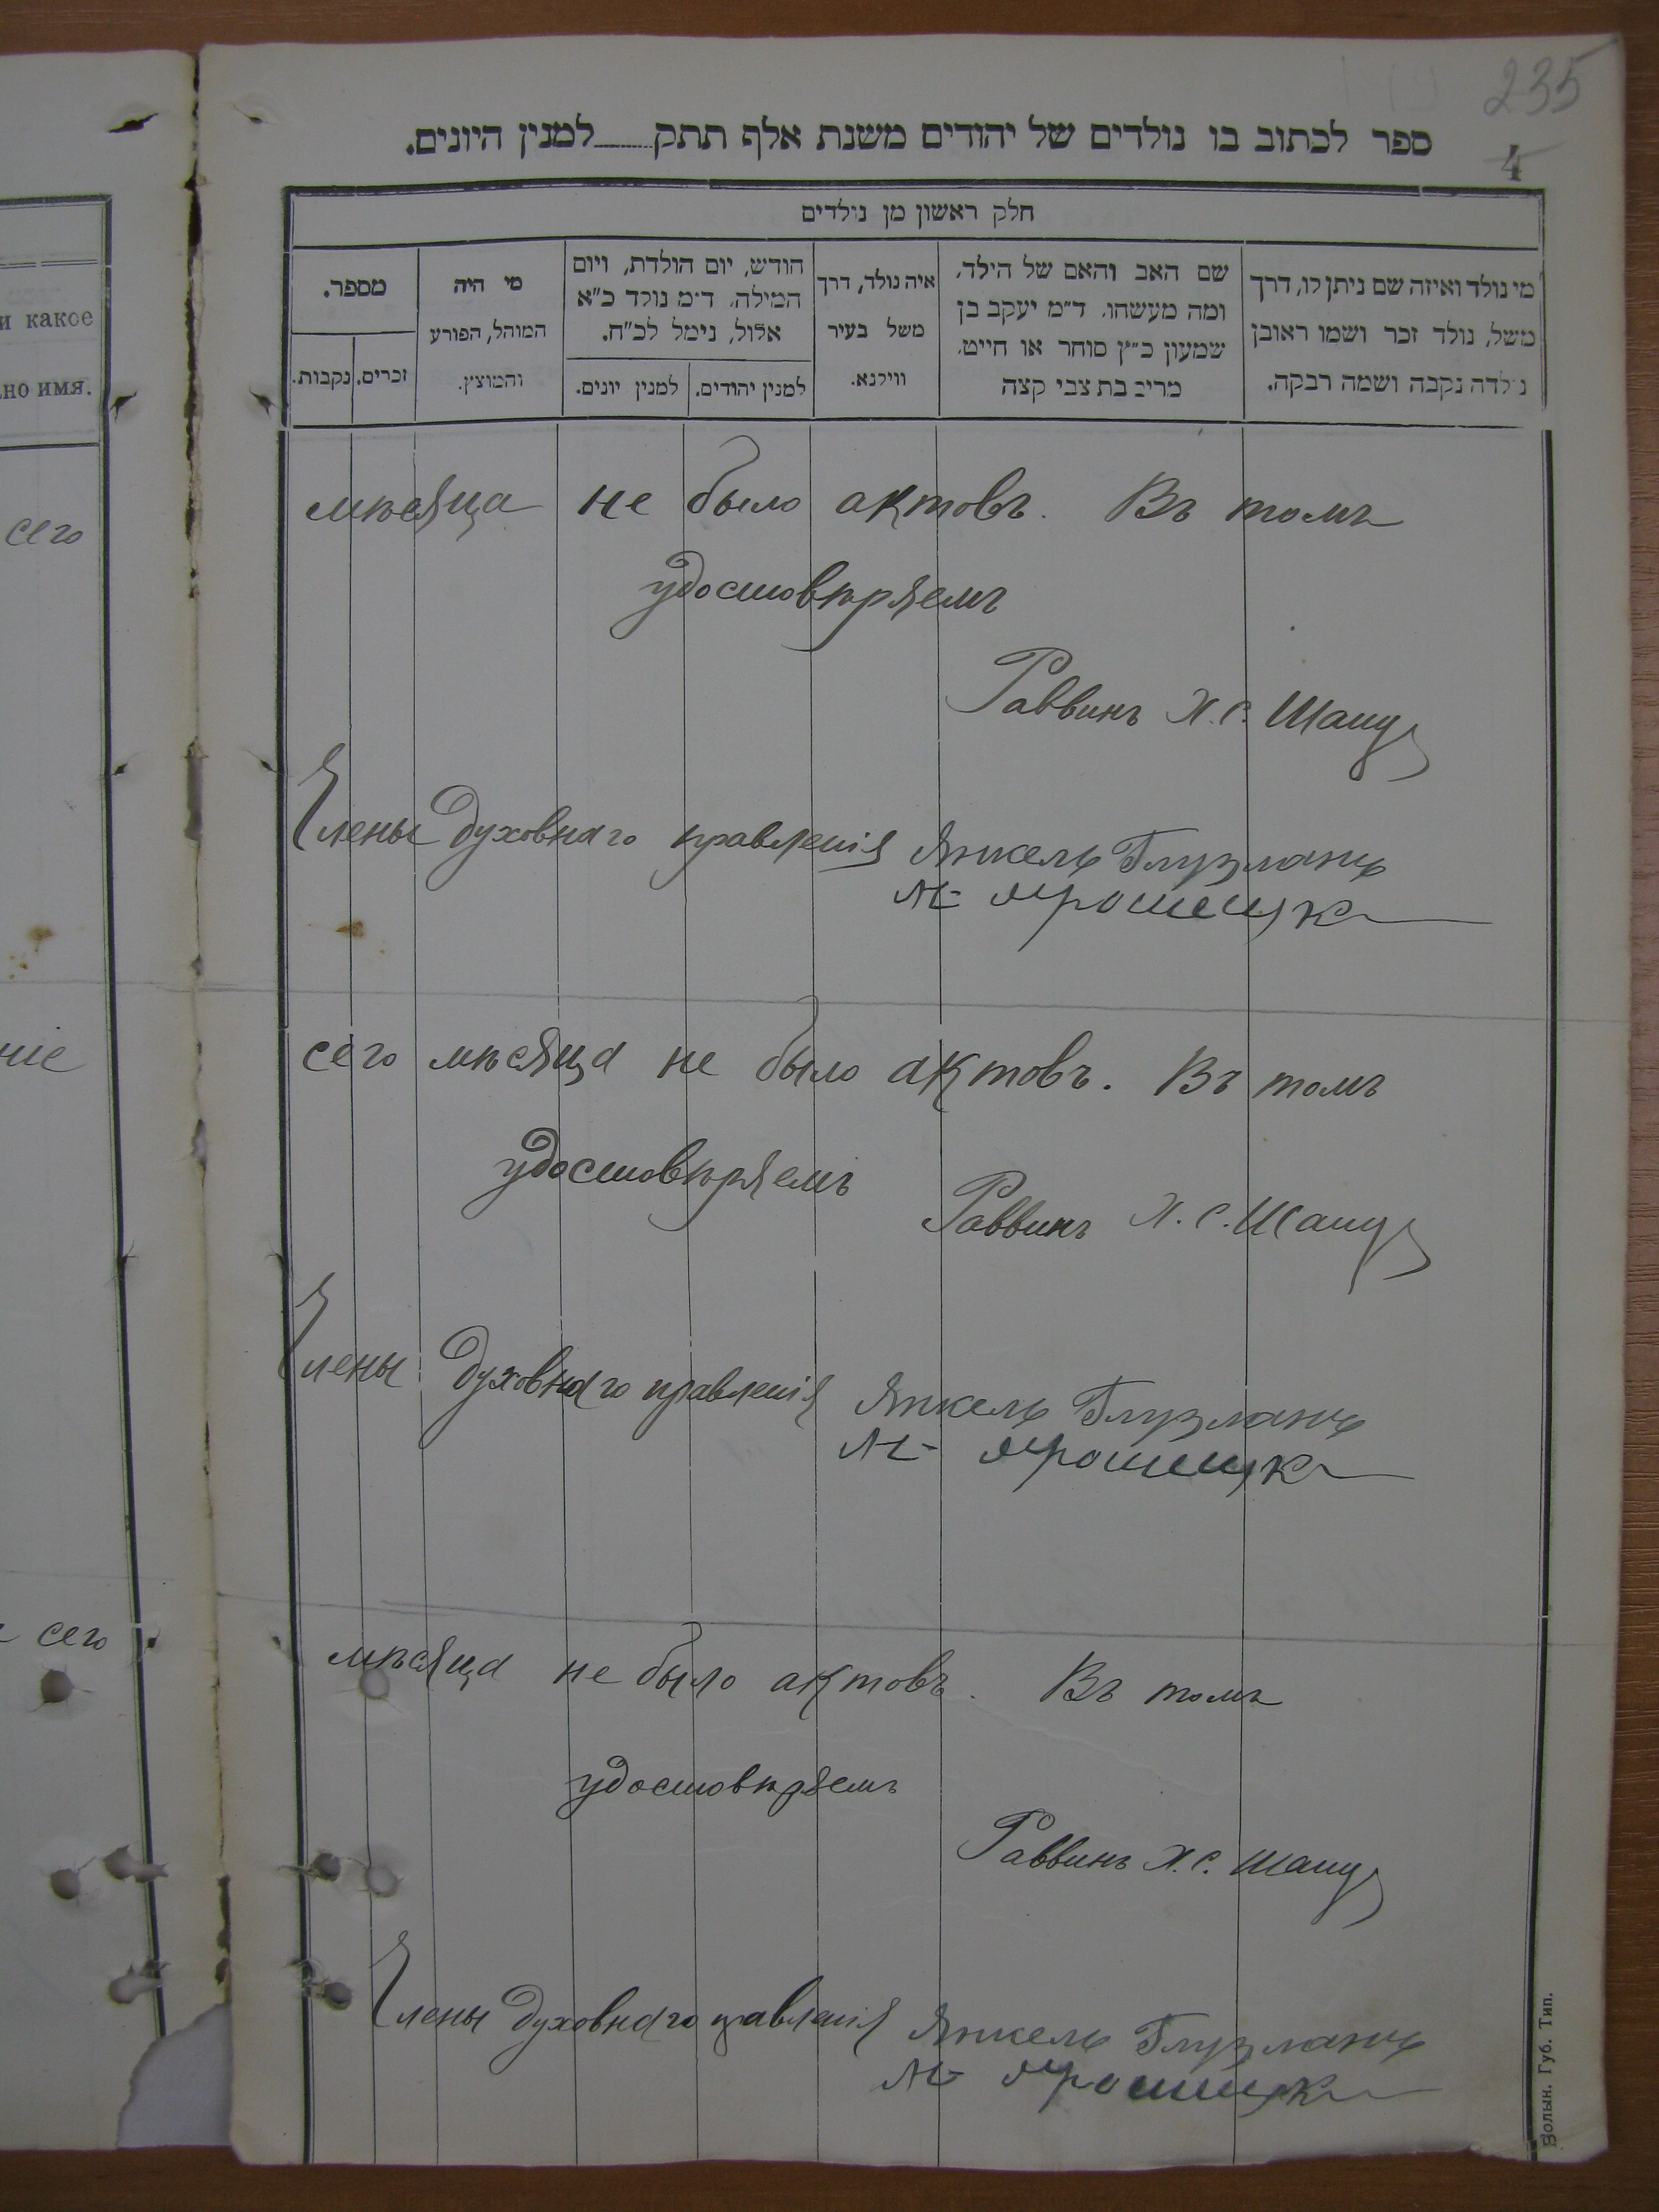 235
ספר לכתוב בו נולדים של יהודים משנת אלף תתק___למנין היונים.
4
חלק ראשון מן נולדים
מי נולד ואיזה שם ניתן לו, דרך
משל, נולד זכר ושמו ראובן
נולדה נקבה ושמה רבקה.
שם האב והאם של הילד,
ומה מעשהו. ד"מ יעקב בן
שמעון כ"ץ סוחר או חייט.
מרים בת צבי קצה
איה נולד, דרך
משל בעיר
ווילנא.
חודש, יום הולדת, ויום
המילה. ד"מ נולד כ"א
אלול, נימל לכ"ח.
למנין יהודים.
למנין יונים.
מי היה
המוהל, הפורע
והמוצץ.
מספר.
זכרים.
נקבות.
и какое
но имя.
сего
мѣсяца не было актовъ. Въ томъ
удостовѣряемъ
Раввинъ Х. С. Шапу
Члены Духовнаго правленія Янкель Глузманъ
сего мѣсяца не было актовъ. Въ томъ
удостовѣряемъ
Раввинъ Х. С. Шапу
Члены Духовнаго правленія Янкель Глузманъ
сего
мѣсяца не было актовъ. Въ томъ
удостовѣряемъ
Раввинъ Х. С. Шапу
Члены Духовнаго правленія Янкель Глузманъ
Волын. Губ. Тип.